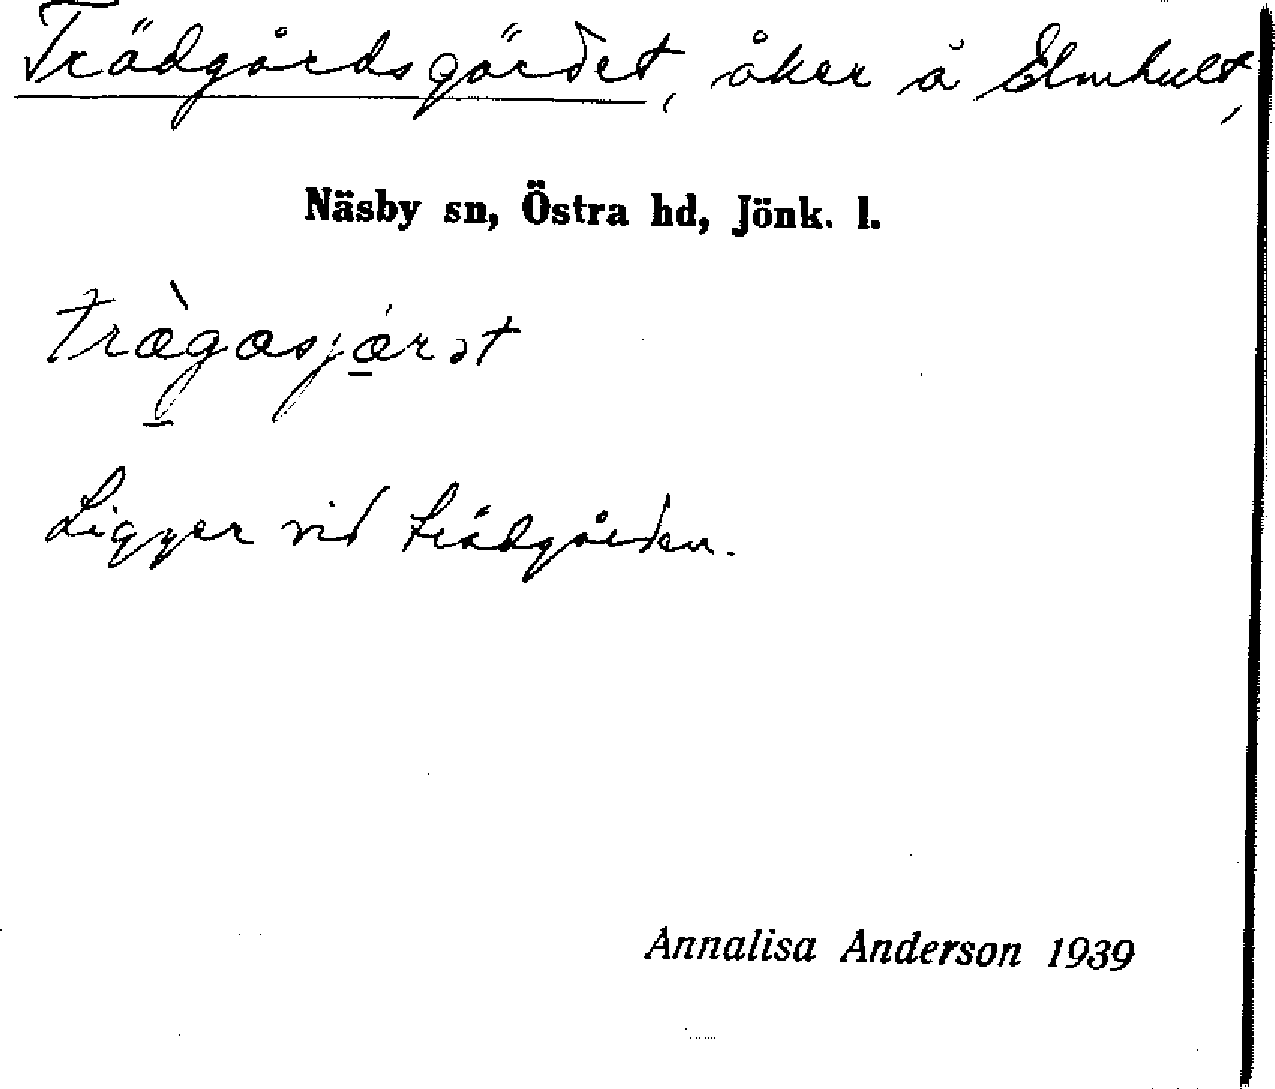 Trädgårdsgärdet, åker å Elmhult,
Näsby sn, Östra hd, Jönk. l.
træ̀gasjǽrət
Ligger vid trädgården.
Annalisa Anderson 1939